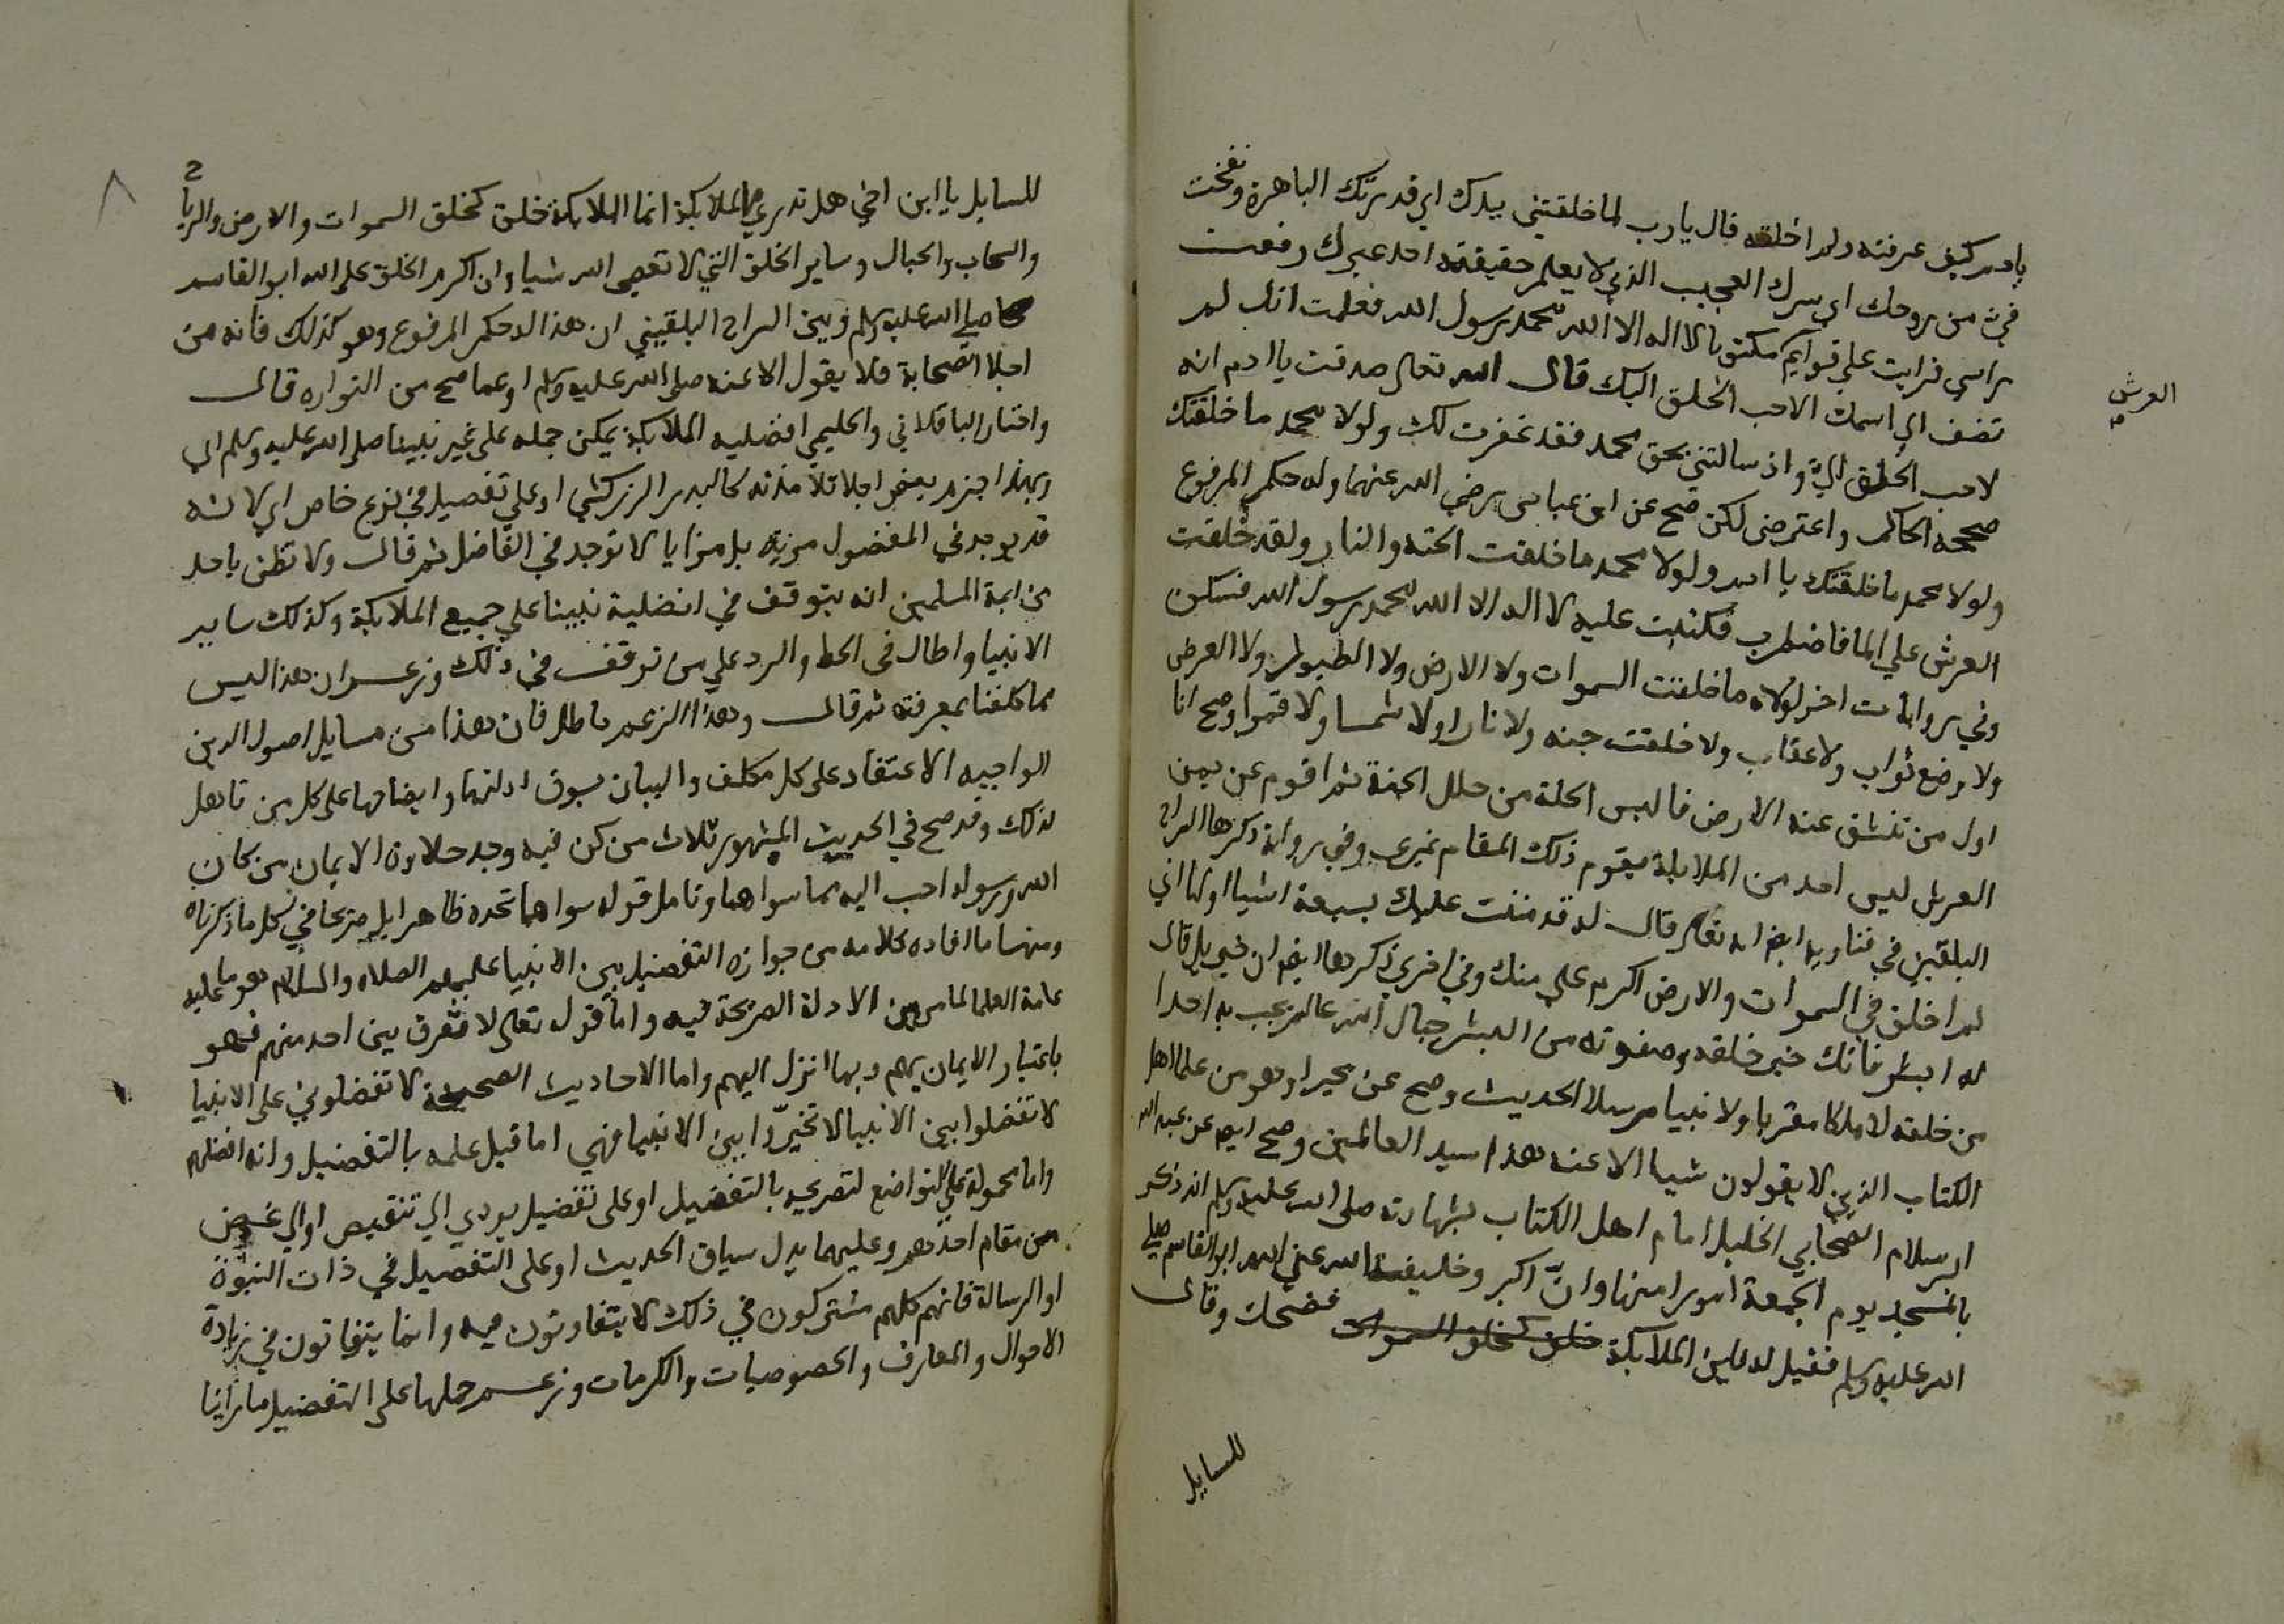 يا ادم كيف عرفته ولم اخلقه قال يا رب لما خلقتني بيدك اي قدرتك الباهرة ونفخت
في من روحك اي سرك العجيب الذي لا يعلم حقيقته احد غيرك رفعت
راسي فرايت على قوايم مكتوبا لا اله الا الله محمد رسول الله فعلمت انك لم
العرش
تضف الى اسمك الا احب الخلق اليك قال الله تعالى صدقت يا ادم انه
لاحب الخلق الي واذ سالتني بحق محمد فقد غفرت لك ولولا محمد ما خلقتك
صححه الحاكم واعترض لكن صح عن ابن عباس رضي الله عنهما وله حكم المرفوع
ولولا محمد ما خلقتك يا ادم ولولا محمد ما خلقت الجنه والنار ولقد خلقت
العرش على الما فاضطرب فكتبت عليه لا اله الا الله محمد رسول الله فسكن
وفي روايات اخر لولاه ما خلقت السموات ولا الارض ولا الطول ولا العرض
ولا وضع ثواب ولا عقاب ولا خلقت جنه ولا نارا ولا شمسا ولا قمرا وصح انا
اول من تنشق عنه الارض فالبس الحلة من حلل الجنة ثم اقوم عن يمين
العرش ليس احد من الملايكة يقوم ذلك المقام غيري وفي رواية ذكرها السراج
البلقيني في فتاويه ايضا انه تعالى قال له قد مننت عليك بسبعة اشيا اولها اني
لم اخلق في السموات والارض اكرم علي منك وفي اخرى ذكرها ايضا ان جبريل قال
له ابشر فانك خير خلقه وصفوته من البشر حباك الله عالم يحب به احدا
من خلقه لا ملكا مقربا ولا نبيا مرسلا الحديث وصح عن بحيرا وهو من علما اهل
الكتاب الذين لا يقولون شيا الا عنه هذا سيد العالمين وصح ايضا عن عبد الله
ابن سلام الصحابي الجليل امام اهل الكتاب بشهادته صلى الله عليه وسلم انه ذكر
بالمسجد يوم الجمعة امورا منها وان اكبر وخليفة الله عنى الله ابو القاسم صلى
الله عليه وسلم فقيل له فاين الملايكة خلق كخلق السموات فضحك وقال
للسايل
للسايل يا ابن اخي هل تدري ما الملايكة انما الملايكة خلق كخلق السموات والارض والرياح
والسحاب والجبال وساير الخلق التي لا تعصي الله شيا وان اكرم الخلق على الله ابو القاسم
صلى الله عليه وسلم وبين السراج البلقيني ان هذا له حكم المرفوع وهو كذلك فانه من
اجلا الصحابة فلا يقول الا عنه صلى الله عليه وسلم او عما صح من التوراه قال
واختار الباقلاني والحليمي افضليه الملايكة يمكن حمله على غير نبينا صلى الله عليه وسلم اي
وبهذا جزم بعض اجلا تلامذته كالبدر الزركشي او على تفصيل في نوع خاص اي لانه
قد يوجد في المفضول مزيه بل مزايا لا توجد في الفاضل ثم قال ولا تظن باحد
من ايمة المسلمين انه يتوقف في افضلية نبينا على جميع الملايكة وكذلك ساير
الانبيا واطال في الحط والرد على من توقف في ذلك وزعم ان هذا ليس
مما كلفنا بمعرفته ثم قال وهذا الزعم باطل فان هذا من مسايل اصول الدين
الواجبه الاعتقاد على كل مكلف والبيان بسوق ادلتها وايضاحها على كل من تاهل
لذلك وقد صح في الحديث المشهور ثلاث من كن فيه وجد حلاوة الايمان من كان
الله ورسوله احب اليه مما سواهما وتامل قوله سواهما تجده ظاهرا بل صريحا في كل ما ذكرناه
ومنها ما افاده كلامه من جوازه التفضيل بين الانبيا عليهم الصلاه والسلام هو ما عليه
عامة العلما لما من بين الادلة الصريحة فيه واما قوله تعالى لا نفرق بين احد منهم فهو
باعتبار الايمان بهم وبما انزل اليهم واما الاحاديث الصحيحة لا تفضلوني على الانبيا
لا تفضلوا بين الانبيا لا تخيروا بين الانبيا فهي اما قبل علمه بالتفضيل وانه افضلهم
واما محمولة على التواضع لتصريحه بالتفضيل او على تفضيل يودي الى تنقيص او الى غض
من مقام احدهم وعليهما يدل سياق الحديث او على التفضيل في ذات النبوة
او الرسالة فانهم كلهم مشتركون في ذلك لا يتفاوتون فيه وانما يتفاوتون في زيادة
الاحوال والمعارف والخصوصيات والكرمات وزعم حملها على التفضيل ما راينا